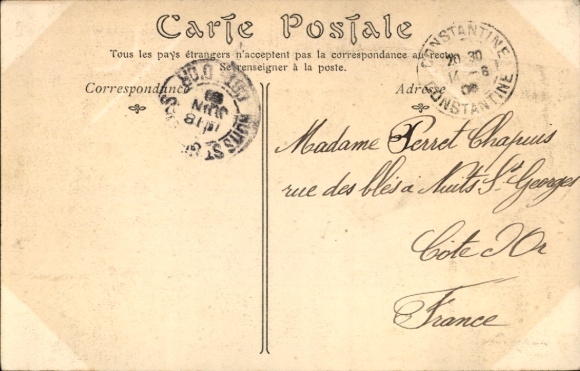 Carte Postale
Tous les pays étrangers n'acceptent pas la correspondance au recto
Se renseigner à la poste.
Correspondance
Adresse
CONSTANTINE
20 30
14 - 6
CONSTANTINE
NUITS ST
CÔTE D'OR
18
JUIN
Madame Perret Chapuis
rue des blés à Nuits St Georges
Côte d'Or
France